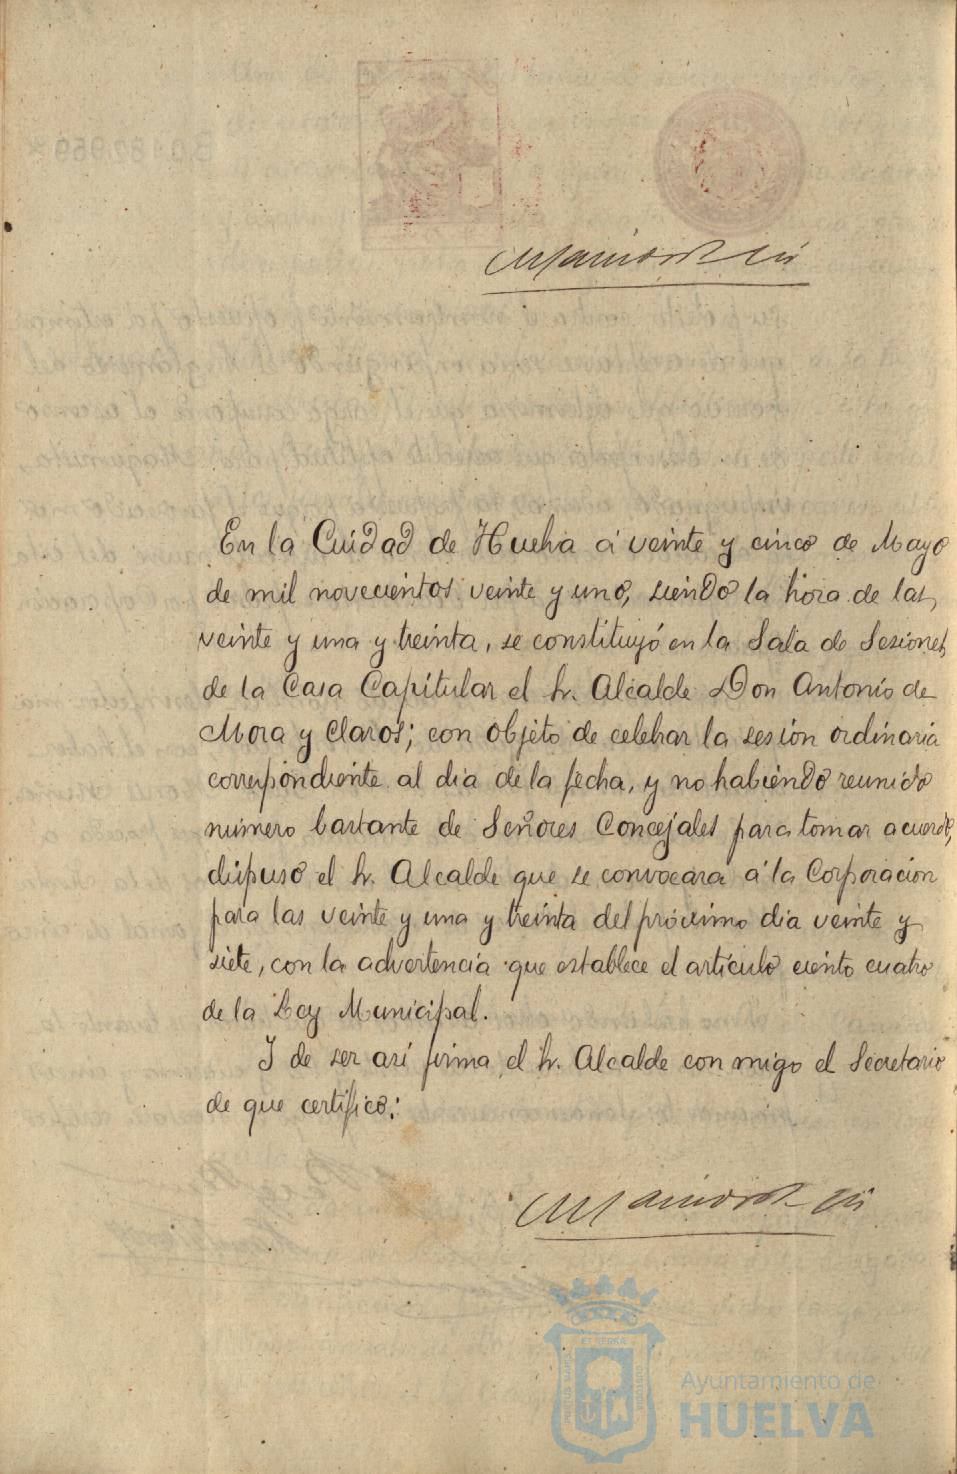 En la Cuidad de Huelva á veinte y cinco de Mayo
de mil novecientos veinte y uno, siendo la hora de las
veinte y una y treinta, se constituyó en la Sala de Sesiones
de la Casa Capitular el Sr. Alcalde Don Antonio de
Mora y Claros; con objeto de celebrar la sesión ordinaria
correspondiente al dia de la fecha, y no habiendo reunido
número bastante de Señores Concejales para tomar acuerdo,
dispuso el Sr. Alcalde que se convocara á la Corporación
para las veinte y una y treinta del próximo dia veinte y
siete, con la advertencia que establece el artículo ciento cuatro
de la Ley Municipal.
Y de ser así firma el Sr. Alcalde con migo el Secretario
de que certifico:
Ayuntamiento de
HUELVA